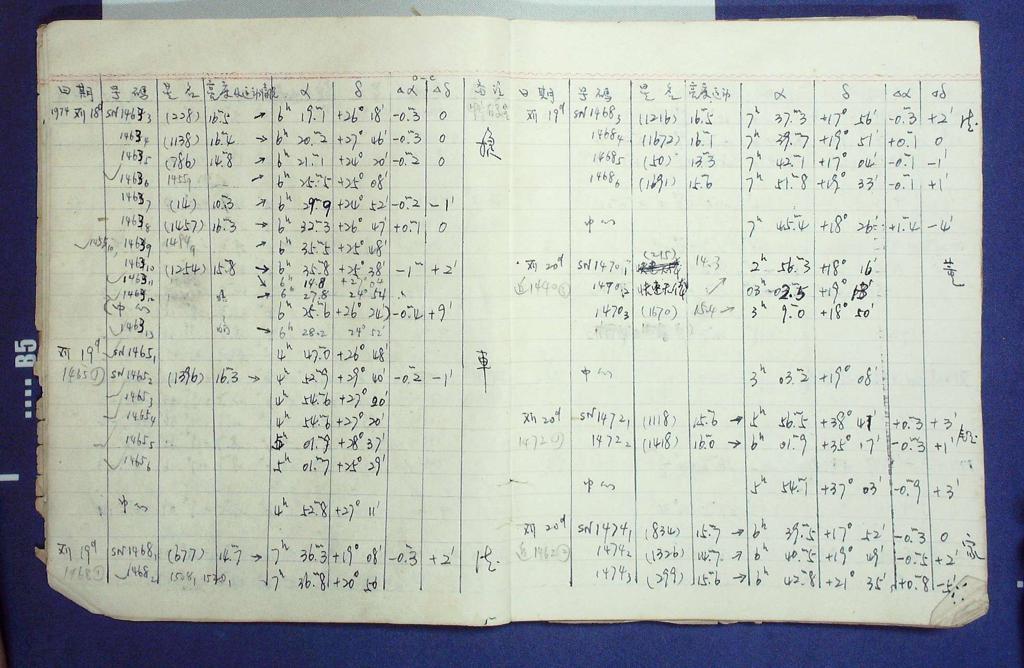 O-C
日期 号码 星名 亮度 α δ Δα Δδ 备注
1974 XII 18ᵈ SN1463₃ (228) 16ᵐ.5 → 6ʰ 19ᵐ.1 +26° 18' -0ᵐ.3 0
1463₄ (1138) 16ᵐ.4 → 6ʰ 20ᵐ.2 +27° 46' -0ᵐ.3 0
1463₅ (786) 14ᵐ.8 → 6ʰ 21ᵐ.1 +24° 20' -0ᵐ.2 0
1463₆ → 6ʰ 25ᵐ.5 +25° 08'
1463₇ (14) 10ᵐ.3 → 6ʰ 29ᵐ.9 +24° 52' -0ᵐ.2 -1'
1463₈ (1457) 16ᵐ.3 → 6ʰ 32ᵐ.3 +26° 47' +0ᵐ.1 0
1463₉ → 6ʰ 35ᵐ.5 +25° 48'
1463₁₀ (1254) 15ᵐ.8 → 6ʰ 35ᵐ.8 +25° 38' -1ᵐ +2'
1463₁₁ 6ʰ 14.8 +27° 04
1463₁₂ 暗 6ʰ 27.8 24° 54
(中心 6ʰ 25ᵐ.6 +26° 24') -0ᵐ.4 +9'
1463₁₃ → 6ʰ 28.2 24° 52'
XII 19ᵈ SN1465₁ 4ʰ 47ᵐ.0 +26° 48' 車
1465① SN1465₂ (1396) 16ᵐ.3 → 4ʰ 52ᵐ.9 +29° 40' -0ᵐ.2 -1'
1465₃ 4ʰ 54ᵐ.6 +27° 20'
1465₄ 4ʰ 54ᵐ.6 +27° 20'
1465₅ 5ʰ 01ᵐ.9 +28° 37'
1465₆ 5ʰ 01ᵐ.7 +25° 29'
中心 4ʰ 52ᵐ.8 +27° 11'
XII 19ᵈ SN1468₁ (677) 14ᵐ.7 → 7ʰ 36ᵐ.3 +19° 08' -0ᵐ.3 +2'
1468① 1468₂ 7ʰ 36ᵐ.8 +20° 50
日期 号码 星名 亮度 运动 α δ Δα Δδ
XII 19ᵈ SN1468₃ (1216) 16ᵐ.5 7ʰ 37ᵐ.3 +17° 56' -0ᵐ.3 +2'
1468₄ (1672) 16ᵐ.1 7ʰ 39ᵐ.7 +19° 51' +0ᵐ.1 0
1468₅ (50) 13ᵐ.3 7ʰ 42ᵐ.1 +17° 04' -0ᵐ.1 -1'
1468₆ (1691) 15ᵐ.6 7ʰ 51ᵐ.8 +19° 33' -0ᵐ.1 +1'
中心 7ʰ 45ᵐ.4 +18° 26' +1ᵐ.4 -4'
XII 20ᵈ SN1470₁ (215) 14.3 2ʰ 56ᵐ.3 +18° 16'
近1440① 1470₂ 快速天体 03ʰ +19° 13'
1470₃ (1670) 15.4 → 3ʰ 9ᵐ.0 +18° 50'
中心 3ʰ 03ᵐ.2 +19° 08'
XII 20ᵈ SN1472₁ (1118) 15ᵐ.6 → 5ʰ 56ᵐ.5 +38° 41' +0ᵐ.3 +3'
1472① 1472₂ (1418) 16ᵐ.0 → 6ʰ 01ᵐ.9 +35° 17' -0ᵐ.3 +1'
中心 5ʰ 54ᵐ.1 +37° 03' -0ᵐ.9 +3'
XII 20ᵈ SN1474₁ (834) 15ᵐ.7 → 6ʰ 39ᵐ.5 +17° 52' -0ᵐ.3 0 家
近1462② 1474₂ (1326) 14ᵐ.7 → 6ʰ 40ᵐ.5 +19° 49' -0ᵐ.5 +2'
1474₃ (299) 15ᵐ.6 → 6ʰ 42ᵐ.8 +21° 35' +0ᵐ.8 -5'
B5